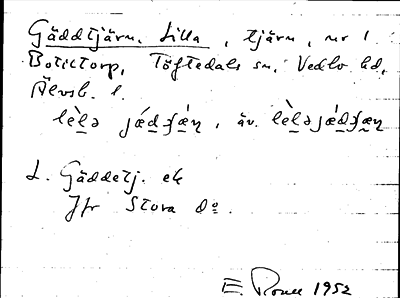 Gäddtjärn, Lilla, tjärn, nr 1
Botettorp, Töftedals sn, Vedbo hd,
Älvsb. l.
lèlə jǽdɟæ̀ɳ, äv. lèləjǽdɟæɳ
L. Gäddetj. ek
Jfr Stora do.
E. 1952